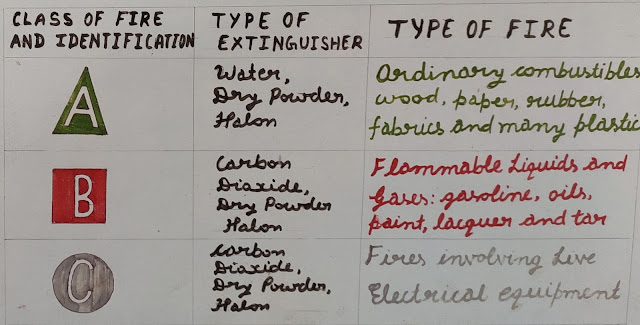 CLASS OF FIRE AND IDENTIFICATION
TYPE OF EXTINGUISHER
TYPE OF FIRE
A
Water,
Dry Powder,
Halon
Ordinary combustibles
wood, paper, rubber,
fabrics and many plastic
B
Carbon
Diaxide,
Dry Powder
Halon
Flammable Liquids and
Gases: gasoline, oils,
paint, lacquer and tar
C
Carbon
Diaxide,
Dry Powder,
Halon
Fires involving Live
Electrical equipment